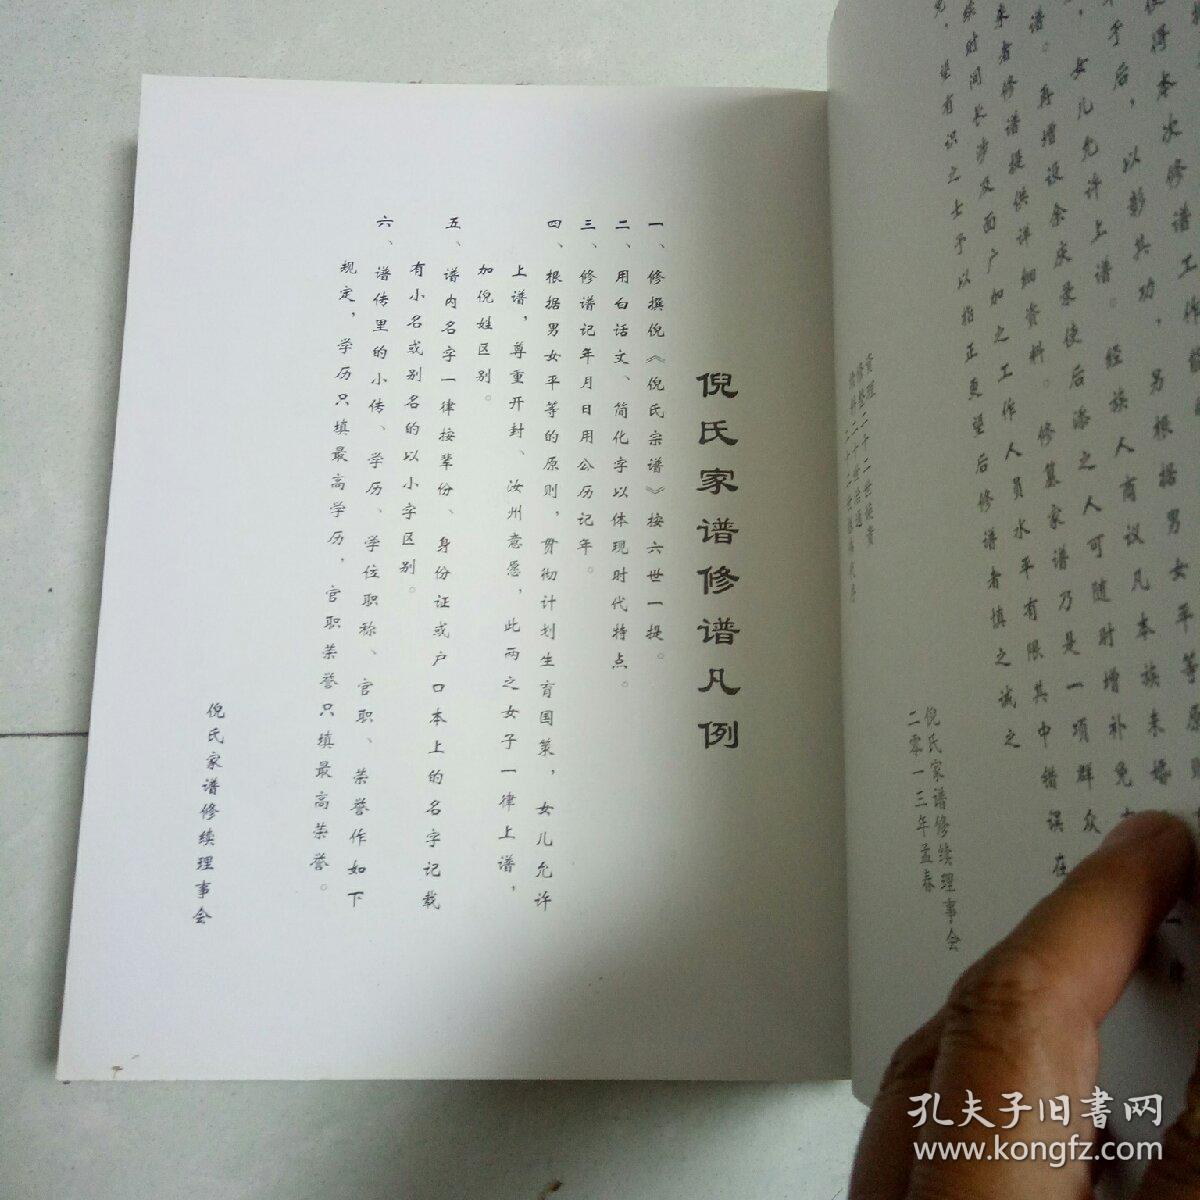 使得本次修谱工作
予后，以彰其功，另根据男女平等原则
，女儿允许上谱。经族人商议凡本族未婚
谱。再增设余庆录使后添之人可随时增补免
来者修谱提供详细资料。修篡家谱乃是一项群众
续时间长涉及面户加之工作人员水平有限其中错误在
免，望有识之士予以指正更望后修谱者慎之诚之
倪氏家谱修续理事会
二零一三年孟春
倪氏家谱修谱凡例
一、修撰倪《倪氏宗谱》按六世一提。
二、用白话文、简化字以体现时代特点。
三、修谱记年月日用公历记年。
四、根据男女平等的原则，贯彻计划生育国策，女儿允许
上谱，尊重开封、汝州意愿，此两之女子一律上谱，
加倪姓区别。
五、谱内名字一律按辈份、身份证或户口本上的名字记载
有小名或别名的以小字区别。
六、谱传里的小传、学历、学位职称、官职、荣誉作如下
规定，学历只填最高学历，官职荣誉只填最高荣誉。
倪氏家谱修续理事会
孔夫子旧书网
www.kongfz.com